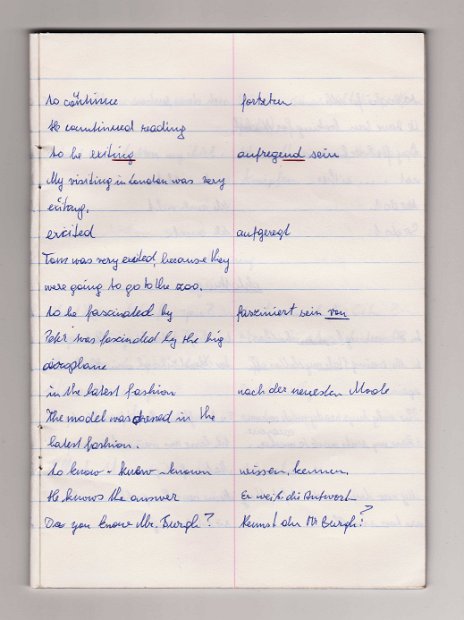 to continue fortsetzen
He countinered reading
to be exiting aufregend sein
My visiting in London was very
exitang.
excited aufgeregt
Tom was very excited, because they
were going to go to the zoo.
to be fascinded by fasziniert sein von
Peter was fascinded by the big
aeroplane
in the latest fashion nach der neuesten Mode
The model was dressed in the
latest fashion.
to know - knew - known wissen, kennen
He knows the answer Er weiß die Antwort
Do you know Mr. Burgh? Kennst du Mr Burgh?